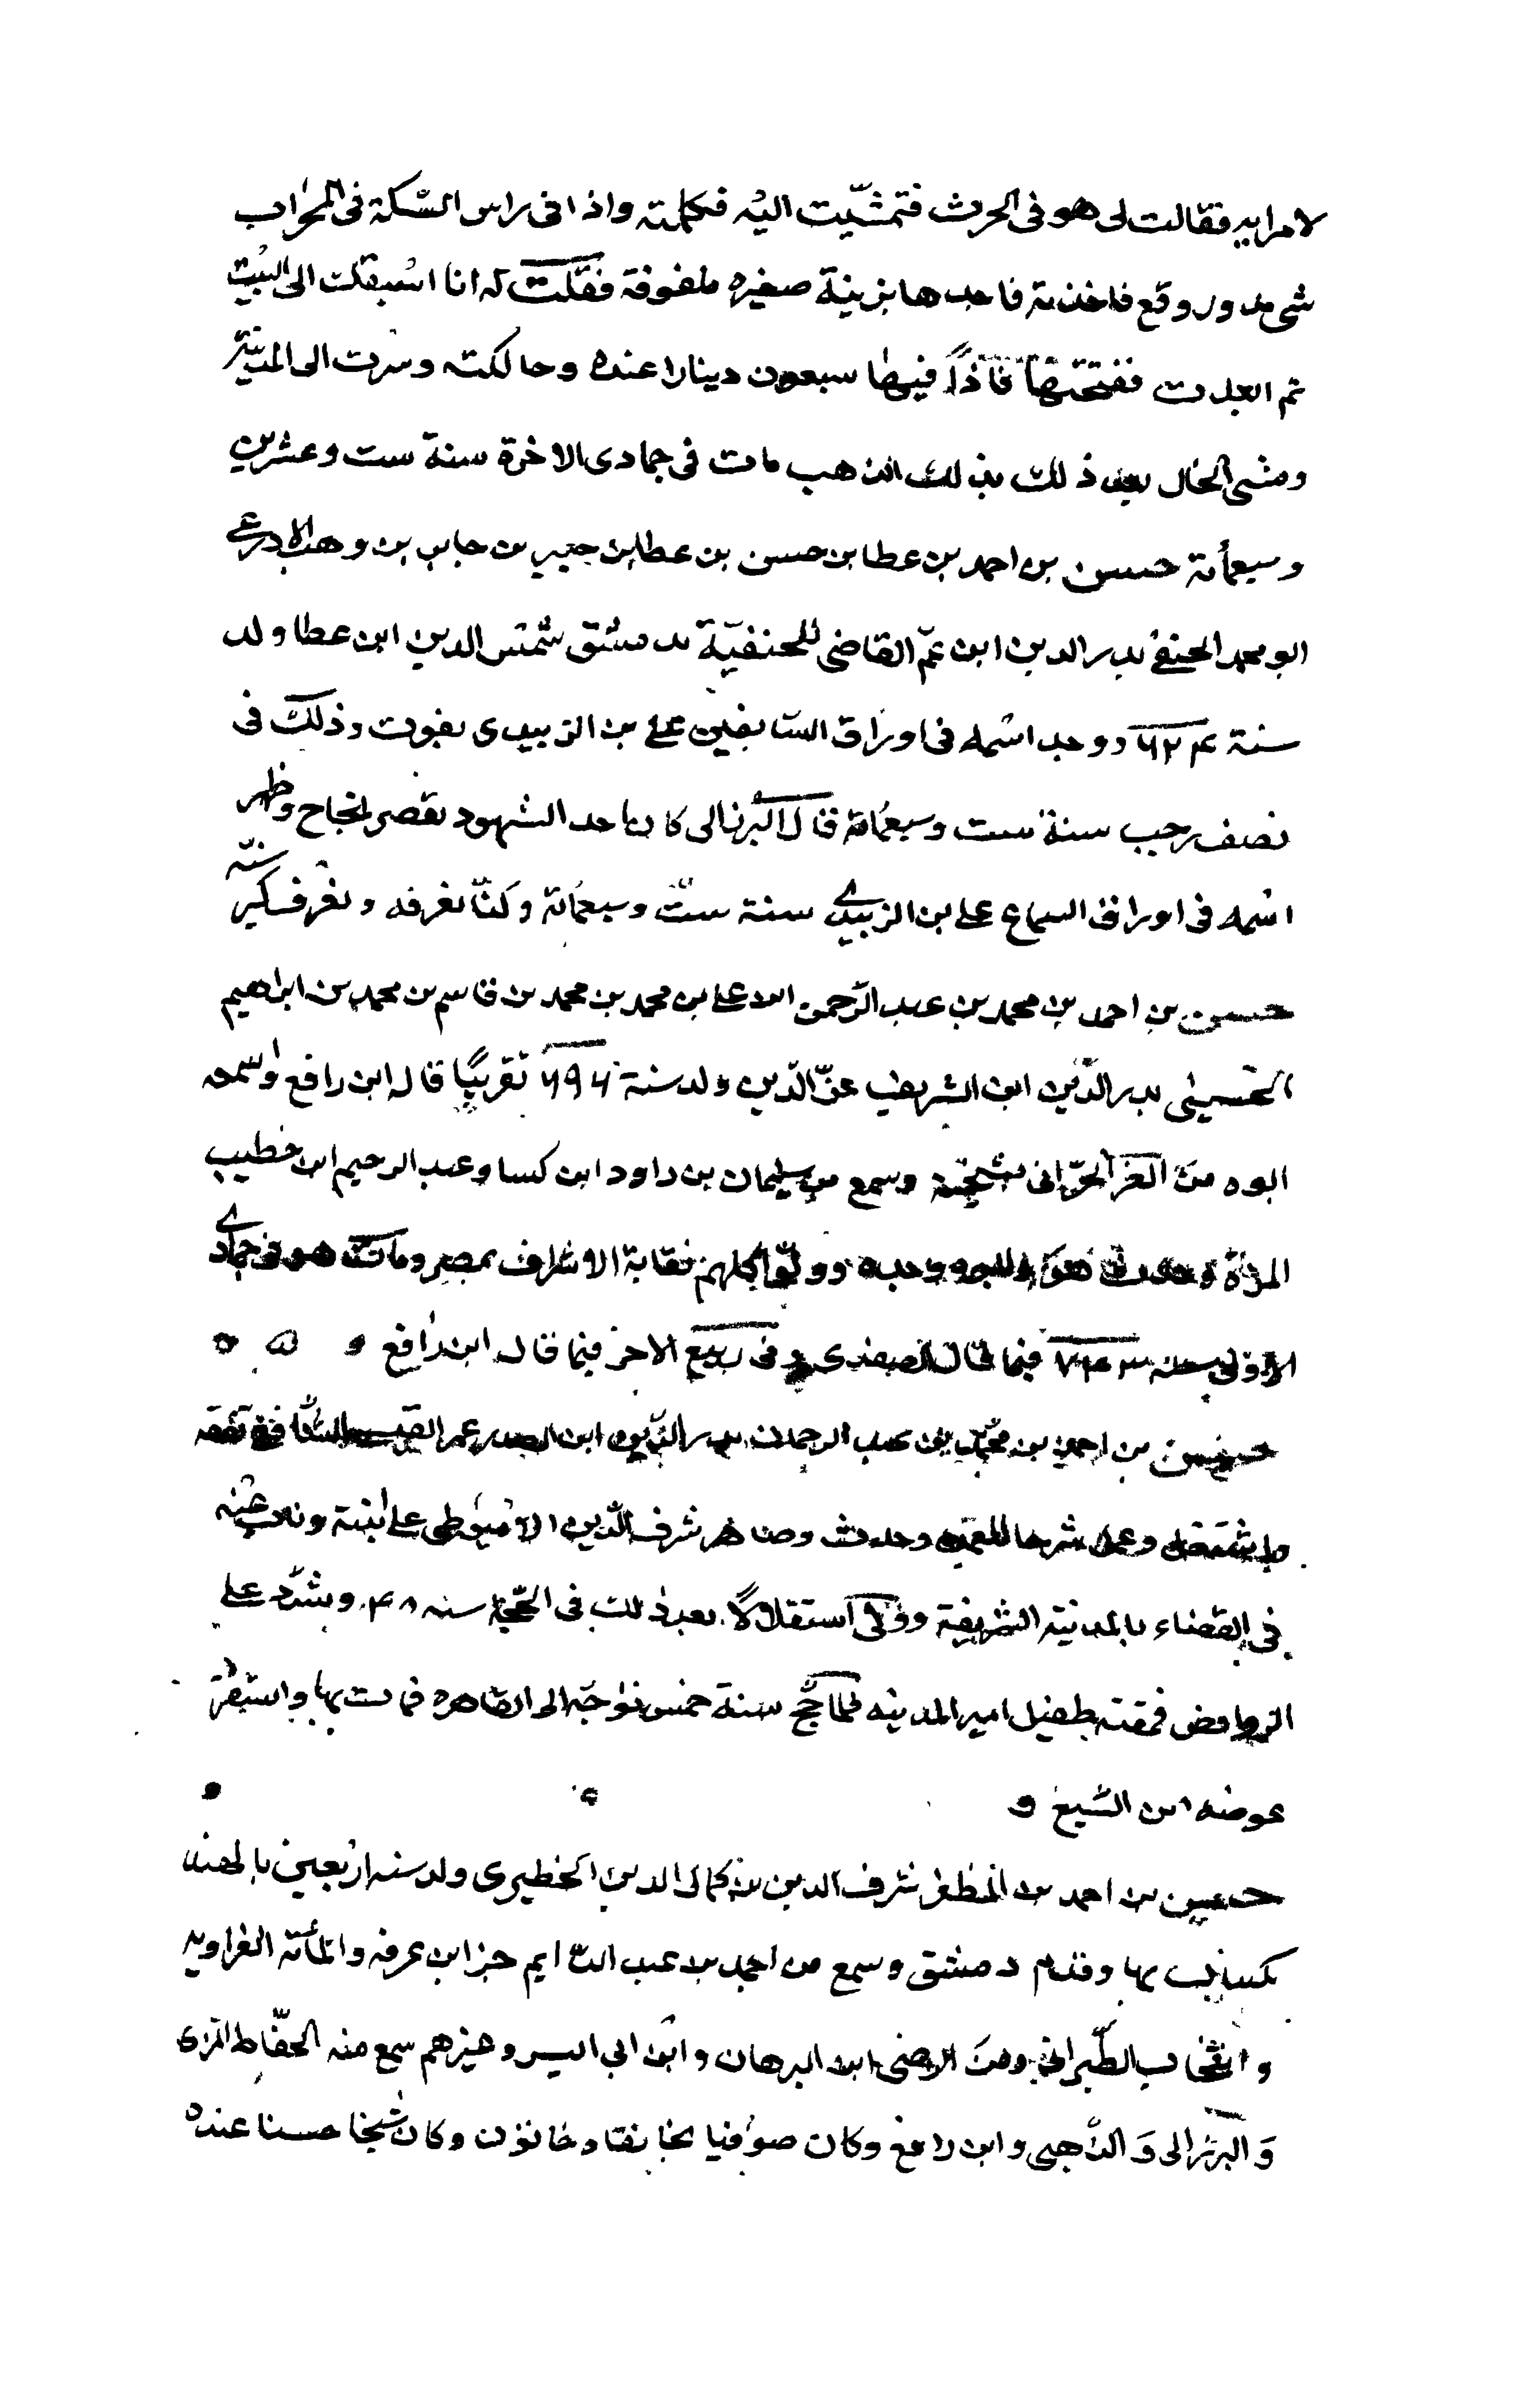 لامرابه فقالت لى هو فى الحرث فتمشّيت اليه فكلمته واذا فى راس السّكة فى المحراب
شى مدور وقع فاخذته فاجدها بزينة صغيره ملفوفة فقلت له انا اسبقك الى البيت
ثم فففتحتها فاذاً فيها سبعون دينارا عنده وحالكته وسرت الى المدينة
ومشى الحال بعد ذلك بذلك الذهب مات فى جمادى الاخرة سنة ست وعشرين
وسبعمأئة حسن بن احمد بن عطا بن حسن بن عطا بن جبير بن جابر بن وهب الادرعى
ابو محمد الحنفى بدر الدين ابن عمّ القاضى للحنفيّة بدمشق شمس الدين ابن عطا ولد
سنة ٦٢٤ ووجد اسمه فى اوراق السّابقين على بن الزبيدى بفوت وذلك فى
نصف رجب سنة ست وسبعمائة قال البرزالى كان احد الشهود بقصر الحجاح وظهر
اسمه فى اوراق السماع على بن الزبيدى سنة ستّ وسبعمائة وكنّا نعرفه ونعرف كبر سنّه
حسن بن احمد بن محمد بن عبد الرّحمن ابن على بن محمد بن محمد بن قاسم بن محمد بن ابراهيم
الحسينى بدر الدّين ابن الشريف عزّ الدّين ولد سنة ٦٩٤ تقريبًا قاله ابن رافع واسمعه
ابوه من العز الحرّانى مشيخته وسمع من سليمان بن داود ابن كسا وعبد الرحيم ابن خطيب
المزة وحدث هو وابوه وجده وولّوا كلهم نقابة الاشراف بمصر ومات هو فى جمادى
الاولى سنة ٧٤٣ فيما قال الصفدى وفى ربيع الاخر فيما قال ابن رافع
حسن بن احمد بن محمد بن عبد الرحمن بدر الدّين ابن الصدر عمر الشّافعى تفقه
واشتغل وعمل شرحا للعمده وحدث وصاهر شرف الدّين الاميوطى على ابنته وناب عنه
فى القضاء بالمدنية الشّريفة وولى استقلالاً بعد ذلك فى الحجّة سنه ٤٨ وشدّد على
الروافض فمقته طفيل امير المدينه فلما حجّ سنة خمس توجّه الى القاهره فمات بها واستقرّ
عوضه ابن الشّيخ
حسين بن احمد بن المظفر شرف الدين بن كمال الدين الخطيرى ولد سنه اربعين بالهند
بها وقدم دمشق وسمع من احمد بن عبد الدّايم جزا ابن عرفه والمأئة الفراويه
وانتخاب الطّبرانى ومن الرضى ابن البرهان وابن ابى اليسر وغيرهم سمع منه الحفّاظ المزى
وَالبرزالى وَالذّهبى وابن رافع وكان صوفيا بخانقاه خاتون وكان شيخا حسنا عنده